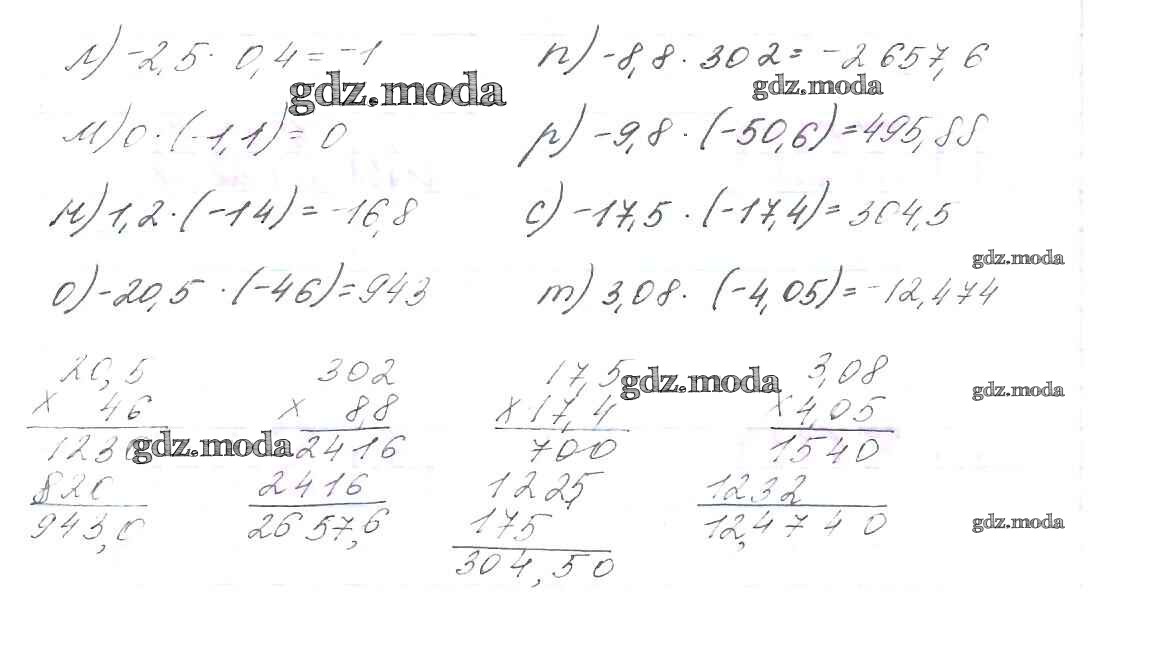 л) -2,5 · 0,4 = -1
п) -8,8 · 302 = -2657,6
gdz.moda
gdz.moda
м) 0 · (-1,1) = 0
р) -9,8 · (-50,6) = 495,88
н) 1,2 · (-14) = -16,8
с) -17,5 · (-17,4) = 304,5
gdz.moda
о) -20,5 · (-46) = 943
т) 3,08 · (-4,05) = -12,474
20,5
× 46
1230
820
943,0
302
× 8,8
2416
2416
2657,6
17,5
× 17,4
700
1225
175
304,50
3,08
× 4,05
1540
1232
12,4740
gdz.moda
gdz.moda
gdz.moda
gdz.moda